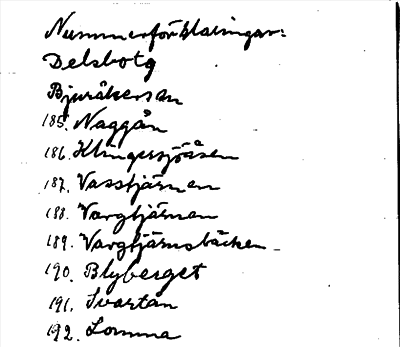 Nummerförklaringar:
Delsbo tg
Bjuråkers sn
185. Naggån
186. Klingersjöåsen
187. Vasstjärnen
188. Vargtjärnen
189. Vargtjärnsbäcken
190. Blyberget
191. Svartån
192. Lomma